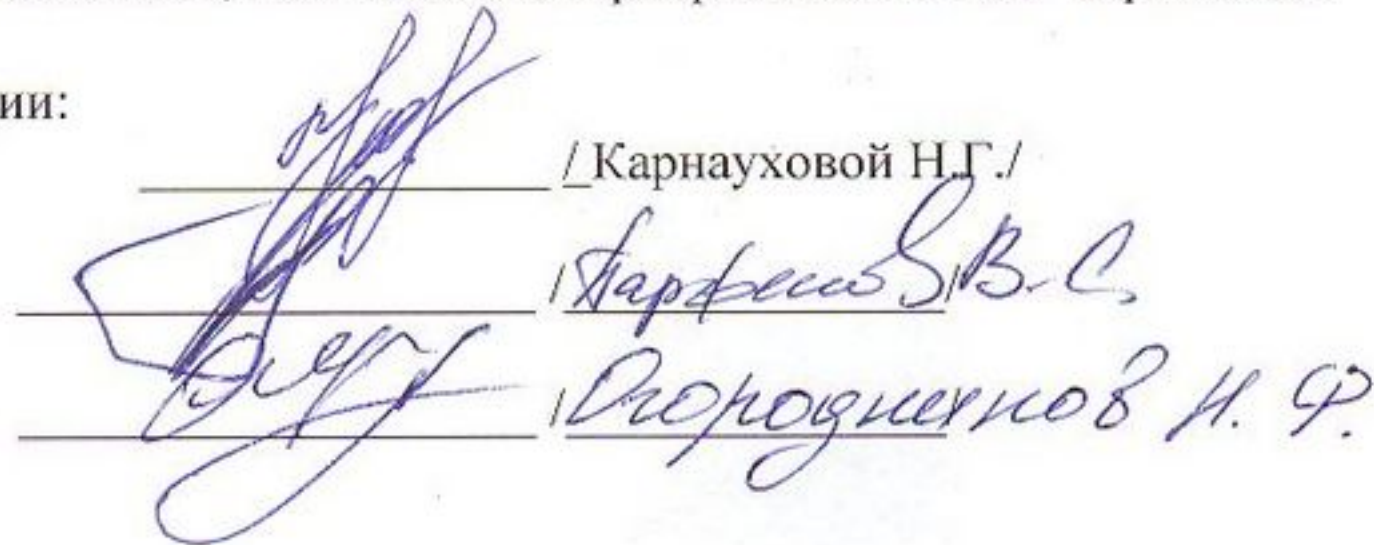 ии:
/_Карнауховой Н.Г./
/Парфенов/В.С.
/Огородников Н. Ф.